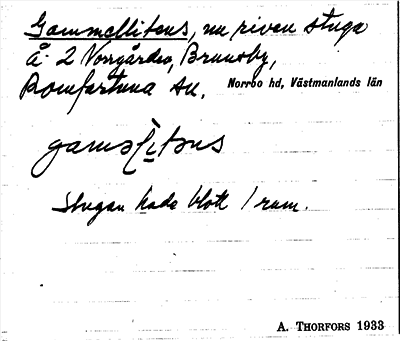 Gammellitens, nu riven stuga
Å 2 Norrgården, Brunsby,
Romfartuna sn. Norrbo hd, Västmanlands län
gaməl̨itəns
Stugan hade blott 1 rum.
A. THORFORS 1933